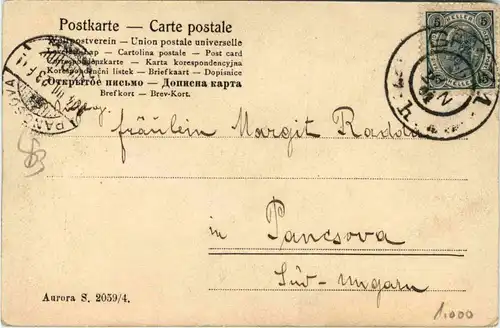 Postkarte — Carte postale
Weltpostverein — Union postale universelle
Levelezö-Lap — Cartolina postale — Post card
Correspondenzkarte — Karta korespondencyjna
Korespondenční lístek — Briefkaart — Dopisnice
Открытое письмо — Дописна карта
Brefkort — Brev-Kort.
5 HELLER 5
PANCSOVA
Fräulein Margit Radda
in Pancsova
Süd-Ungarn
Aurora S. 2059/4.
1.000